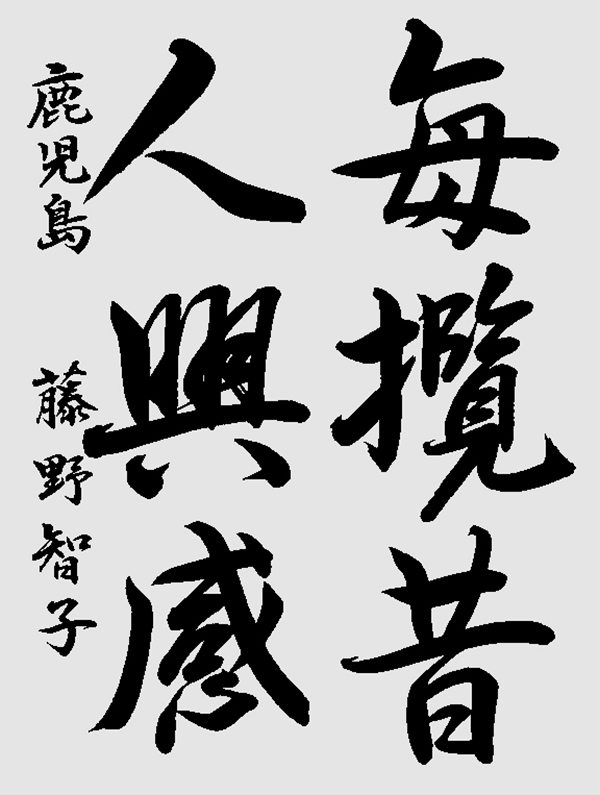 每攬昔
人興感
鹿児島 藤野智子